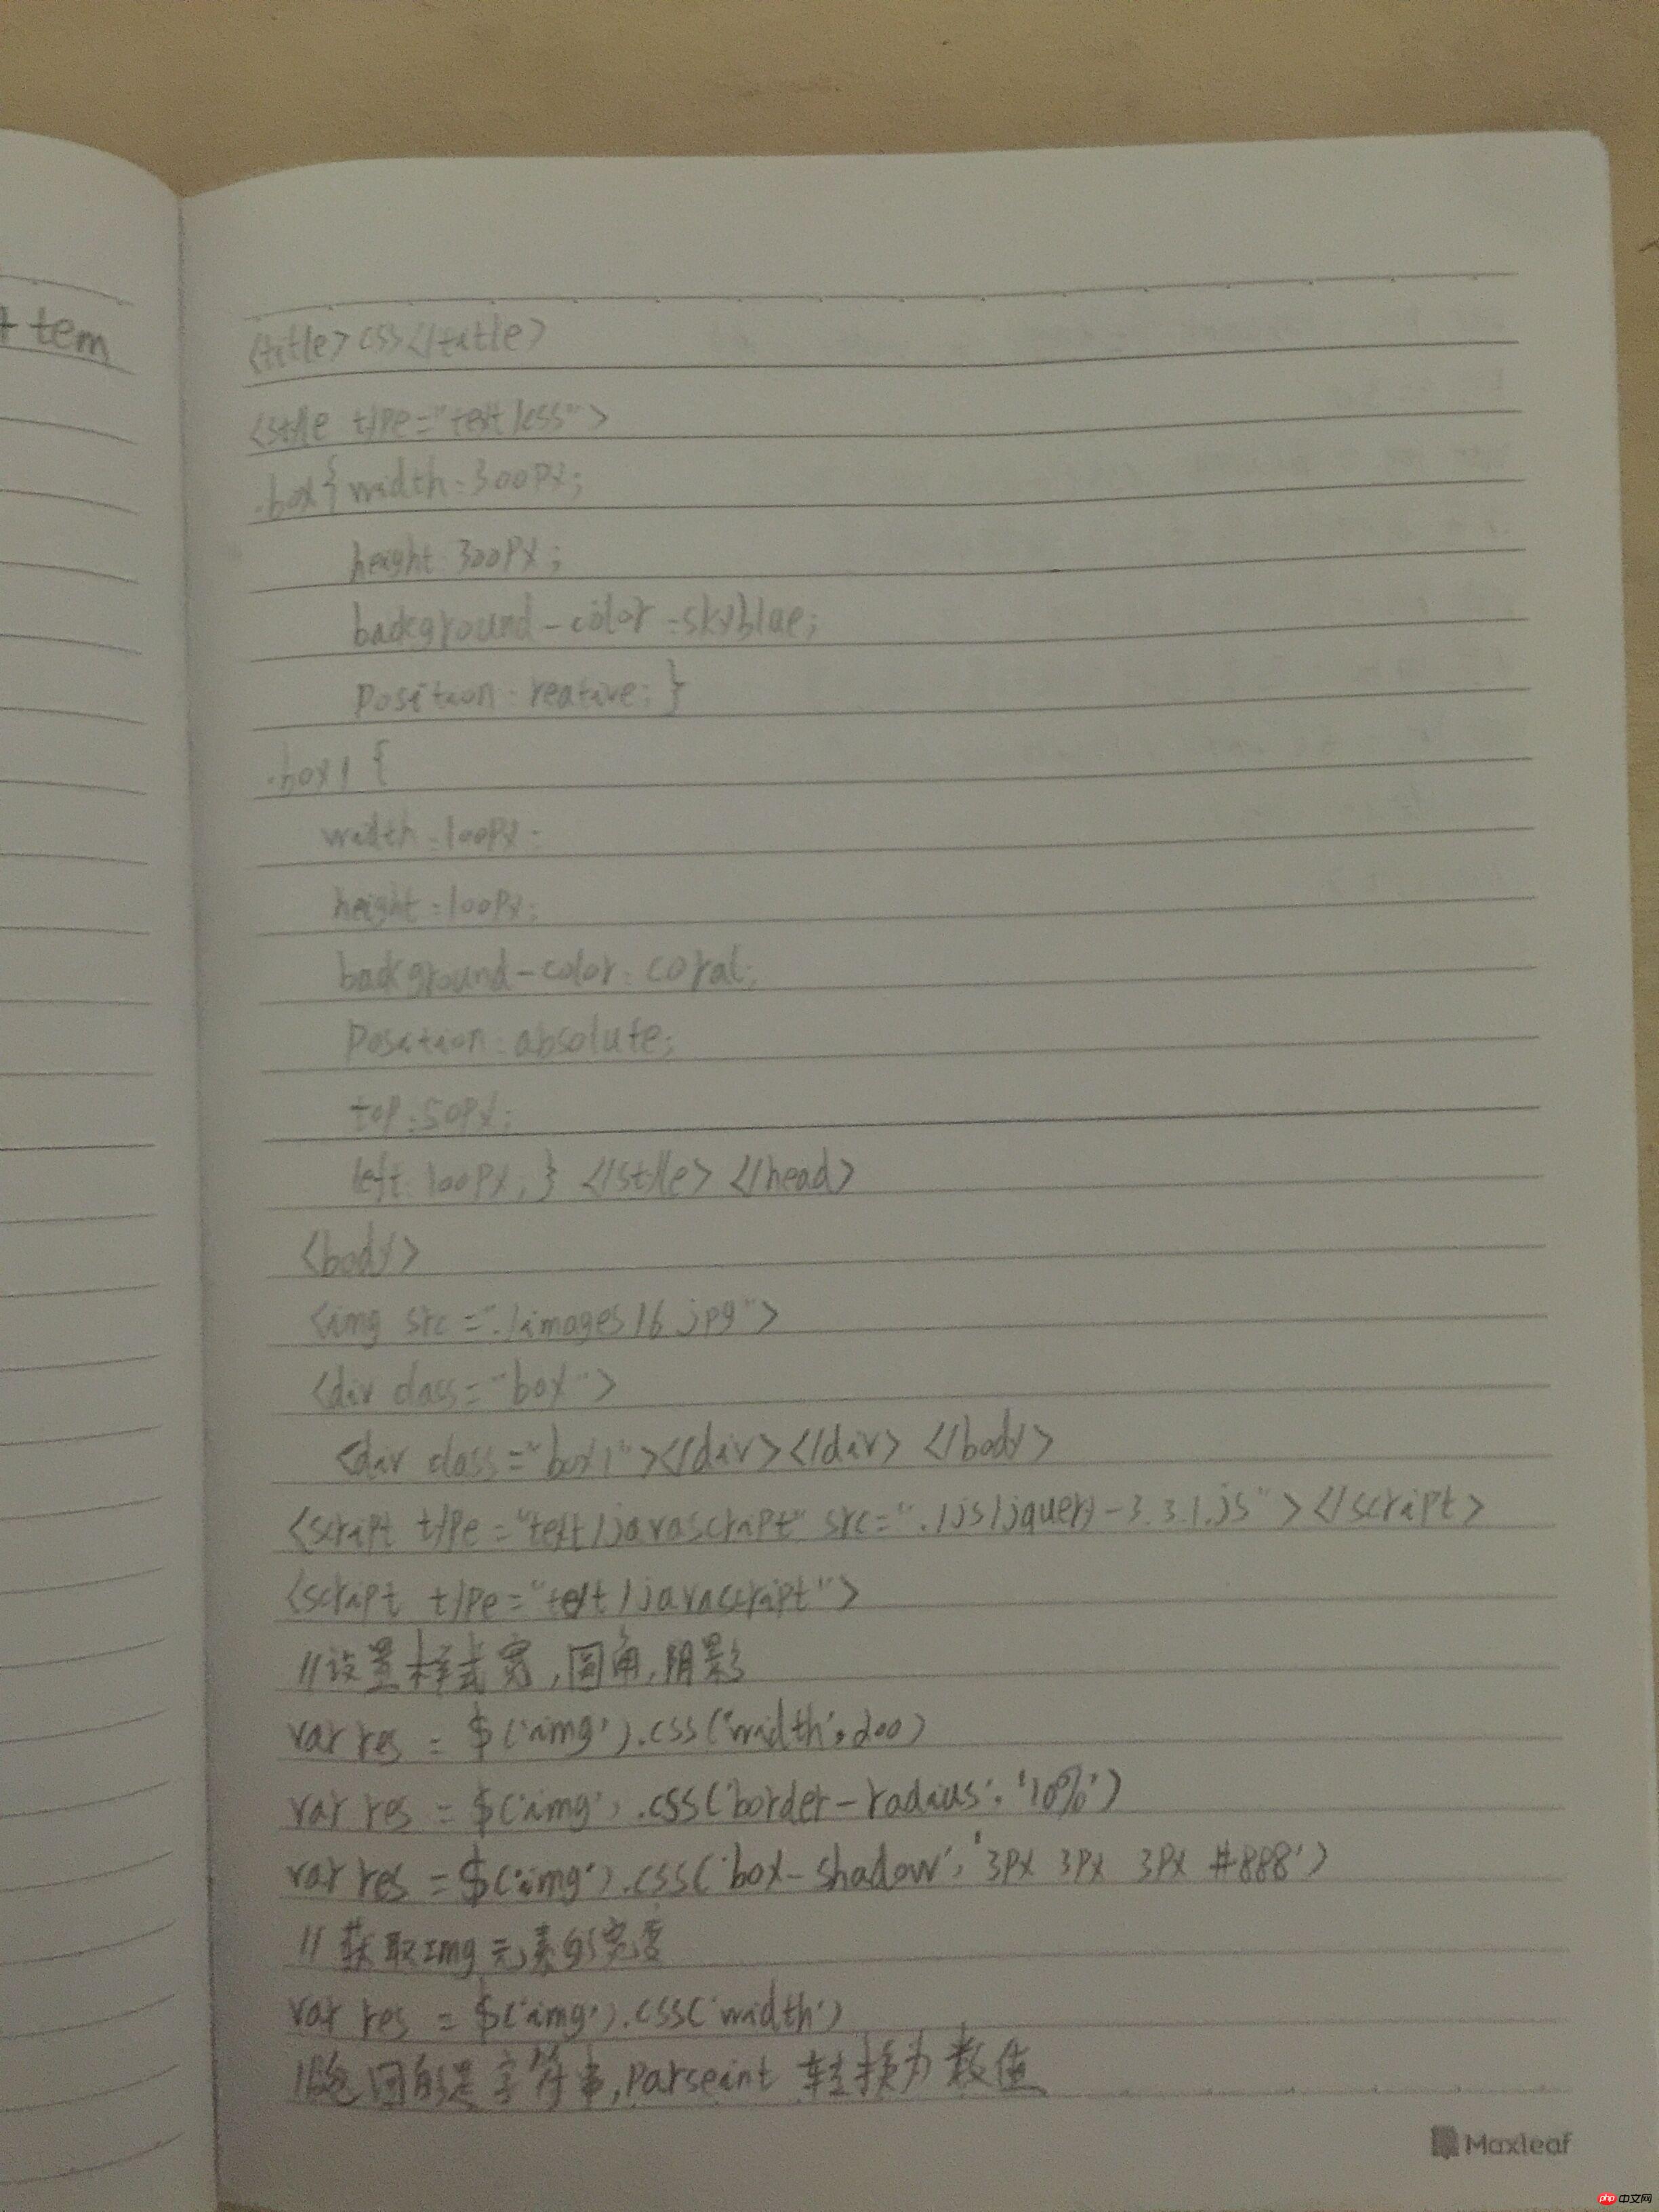 t tem
<title>css</title>
<style type="text/css">
.box{ width:300px;
height:300px;
background-color:skyblue;
position:reative;}
.box1 {
width:100px;
height:100px;
background-color:coral;
position:absolute;
top:50px;
left:100px;} </style> </head>
<body>
<img src="./images/6.jpg">
<div class="box">
<div class="box1"></div></div> </body>
<script type="text/javascript" src="./js/jquery-3.3.1.js"></script>
<script type="text/javascript">
//设置样式宽,圆角,阴影
var res = $('img').css('width',200)
var res = $('img').css('border-radius','10%')
var res = $('img').css('box-shadow','3px 3px 3px #888')
//获取img元素的宽度
var res = $('img').css('width')
//返回的是字符串,parseint 转换为数值
Maxleaf
php中文网